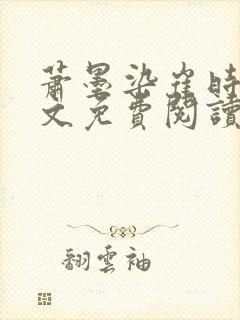 蕭墨染崔時
文免費閱讀
翻雲袖